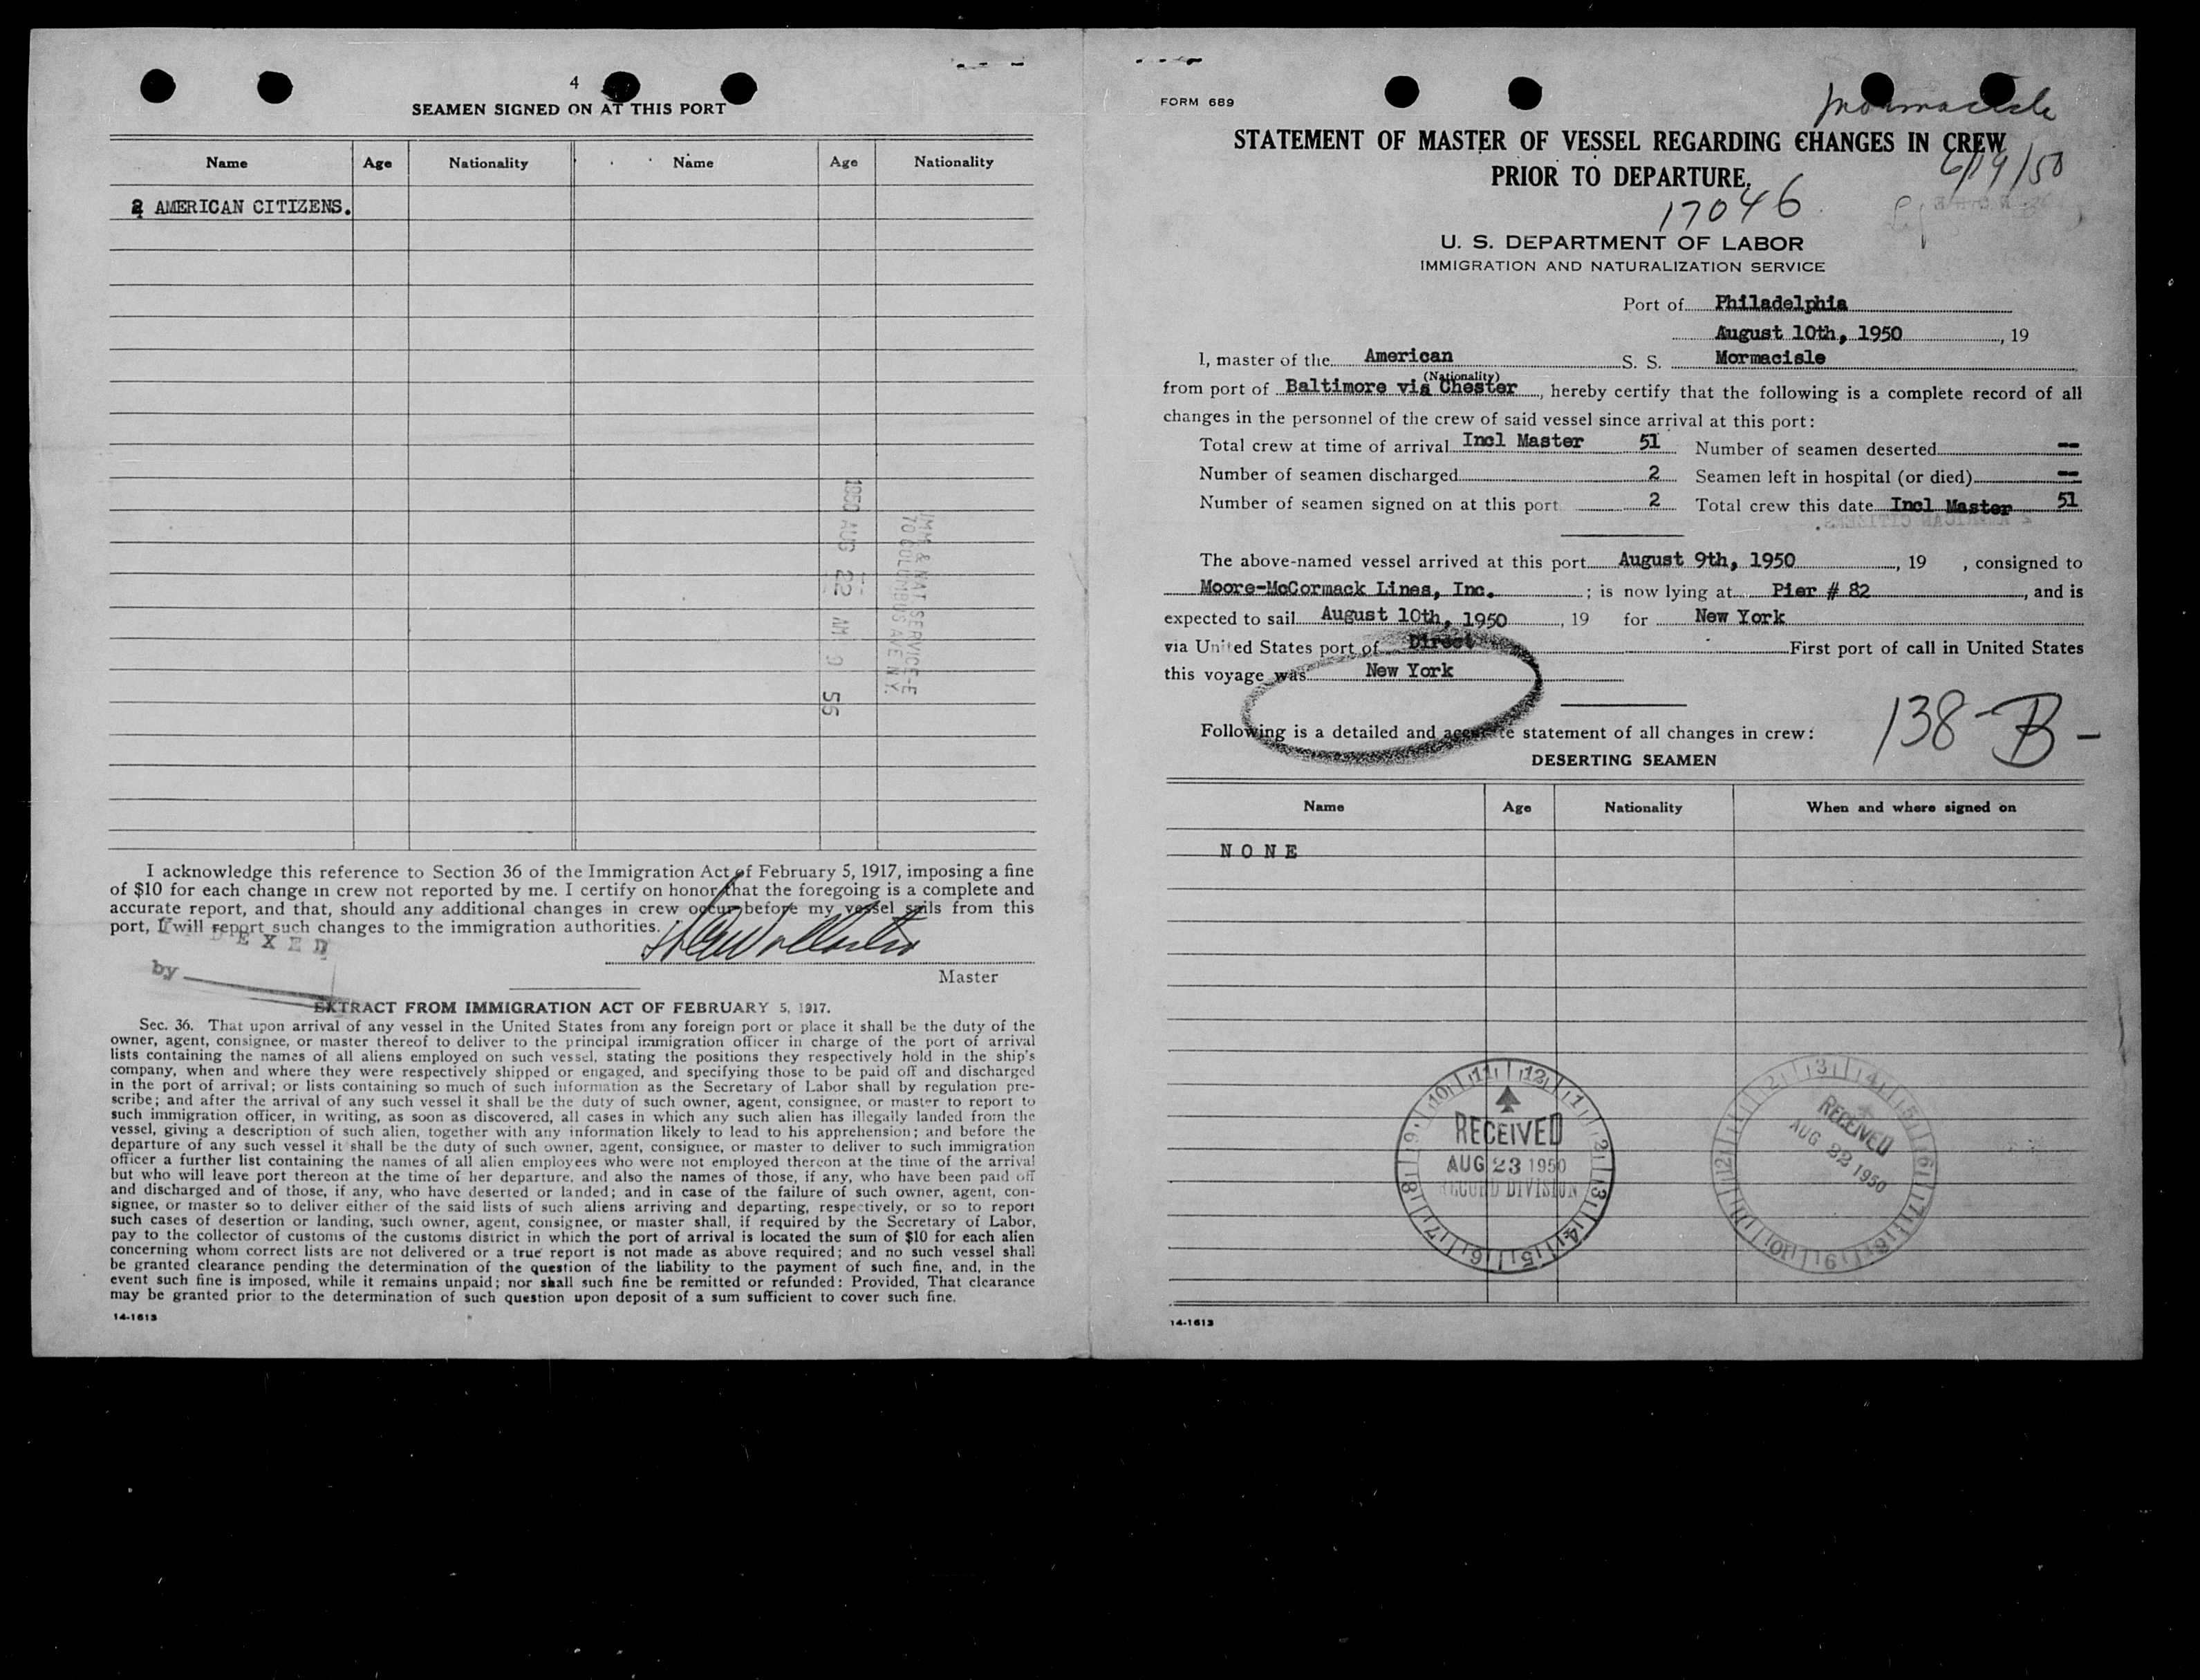 4
SEAMEN SIGNED ON AT THIS PORT
Name Age Nationality Name Age Nationality
2 AMERICAN CITIZENS.
1950 AUG 22 AM 9 55
IMM & NAT. SERVICE-E
70 COLUMBUS AVE N.Y.
I acknowledge this reference to Section 36 of the Immigration Act of February 5, 1917, imposing a fine
of $10 for each change in crew not reported by me. I certify on honor that the foregoing is a complete and
accurate report, and that, should any additional changes in crew occur before my vessel sails from this
port, I will report such changes to the immigration authorities.
INDEXED
by
Master
EXTRACT FROM IMMIGRATION ACT OF FEBRUARY 5, 1917.
Sec. 36. That upon arrival of any vessel in the United States from any foreign port or place it shall be the duty of the
owner, agent, consignee, or master thereof to deliver to the principal immigration officer in charge of the port of arrival
lists containing the names of all aliens employed on such vessel, stating the positions they respectively hold in the ship's
company, when and where they were respectively shipped or engaged, and specifying those to be paid off and discharged
in the port of arrival; or lists containing so much of such information as the Secretary of Labor shall by regulation pre-
scribe; and after the arrival of any such vessel it shall be the duty of such owner, agent, consignee, or master to report to
such immigration officer, in writing, as soon as discovered, all cases in which any such alien has illegally landed from the
vessel, giving a description of such alien, together with any information likely to lead to his apprehension; and before the
departure of any such vessel it shall be the duty of such owner, agent, consignee, or master to deliver to such immigration
officer a further list containing the names of all alien employees who were not employed thereon at the time of the arrival
but who will leave port thereon at the time of her departure, and also the names of those, if any, who have been paid off
and discharged and of those, if any, who have deserted or landed; and in case of the failure of such owner, agent, con-
signee, or master so to deliver either of the said lists of such aliens arriving and departing, respectively, or so to report
such cases of desertion or landing, such owner, agent, consignee, or master shall, if required by the Secretary of Labor,
pay to the collector of customs of the customs district in which the port of arrival is located the sum of $10 for each alien
concerning whom correct lists are not delivered or a true report is not made as above required; and no such vessel shall
be granted clearance pending the determination of the question of the liability to the payment of such fine, and, in the
event such fine is imposed, while it remains unpaid; nor shall such fine be remitted or refunded: Provided, That clearance
may be granted prior to the determination of such question upon deposit of a sum sufficient to cover such fine.
14-1613
FORM 689
Mormacisle
STATEMENT OF MASTER OF VESSEL REGARDING CHANGES IN CREW
PRIOR TO DEPARTURE.
6/19/50
17046
U. S. DEPARTMENT OF LABOR
IMMIGRATION AND NATURALIZATION SERVICE
Port of Philadelphia
August 10th, 1950, 19
I, master of the American S. S. Mormacisle
(Nationality)
from port of Baltimore via Chester, hereby certify that the following is a complete record of all
changes in the personnel of the crew of said vessel since arrival at this port:
Total crew at time of arrival Incl Master 51 Number of seamen deserted --
Number of seamen discharged 2 Seamen left in hospital (or died) --
Number of seamen signed on at this port 2 Total crew this date Incl Master 51
The above-named vessel arrived at this port August 9th, 1950, 19 , consigned to
Moore-McCormack Lines, Inc. ; is now lying at Pier # 82, and is
expected to sail August 10th, 1950, 19 for New York
via United States port of Direct First port of call in United States
this voyage was New York
138-B-
Following is a detailed and accurate statement of all changes in crew:
DESERTING SEAMEN
Name Age Nationality When and where signed on
NONE
11 12 1 2 3 4 5 6 7 8 9 10
RECEIVED
AUG 23 1950
RECORD DIVISION
RECEIVED
AUG 22 1950
14-1613